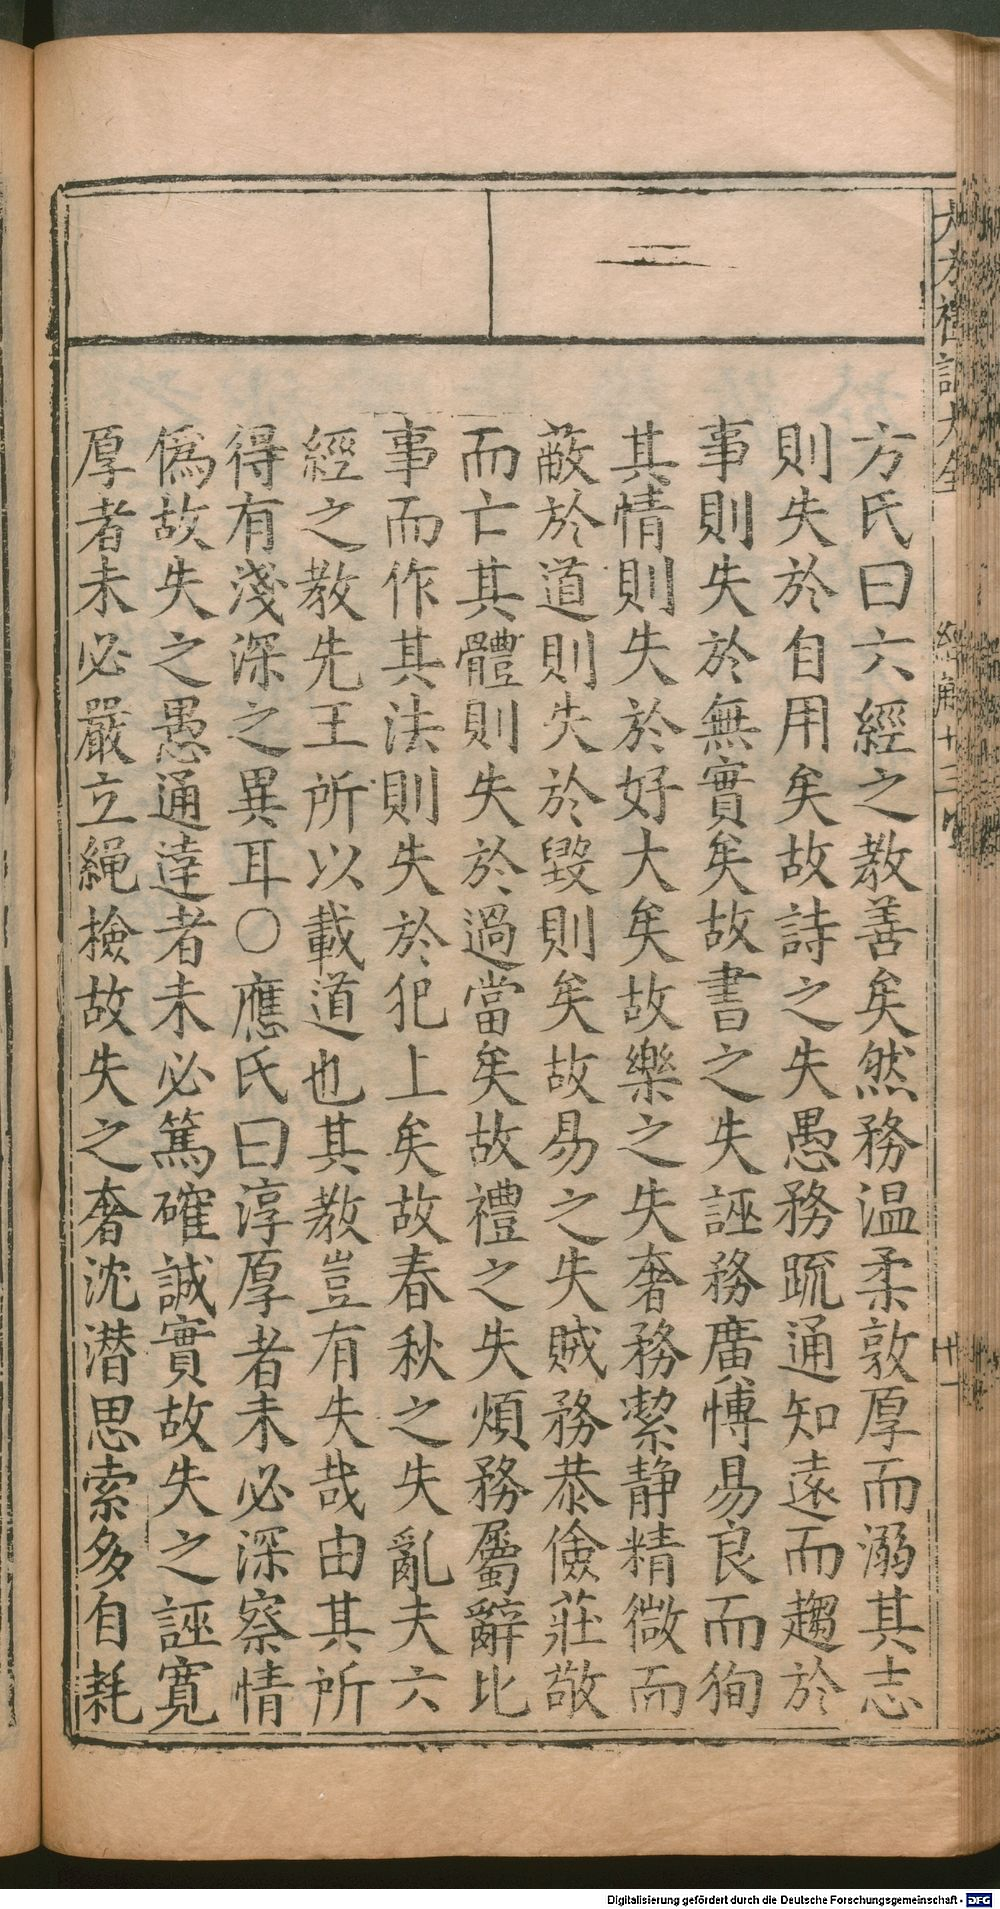 方氏曰六經之教善矣然務温柔敦厚而溺其志
則失於自用矣故詩之失愚務疏通知遠而趨於
事則失於無實矣故書之失誣務廣愽易良而徇
其情則失於好大矣故樂之失奢務潔静精微而
蔽於道則失於毀則矣故易之失賊務恭儉莊敬
而亡其體則失於過當矣故禮之失煩務屬辭比
事而作其法則失於犯上矣故春秋之失亂夫六
經之教先王所以載道也其教豈有失哉由其所
得有淺深之異耳○應氏曰淳厚者未必深察情
偽故失之愚通達者未必篤確誠實故失之誣寬
厚者未必嚴立繩檢故失之奢沈潛思索多自耗
Digitalisierung gefördert durch die Deutsche Forschungsgemeinschaft - DFG